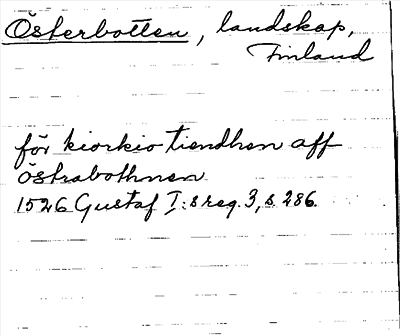 Österbotten, landskap,
Finland
för kiorkio tiendhen aff
Östrabothnen.
1526 Gustaf I:s reg. 3, s. 286.